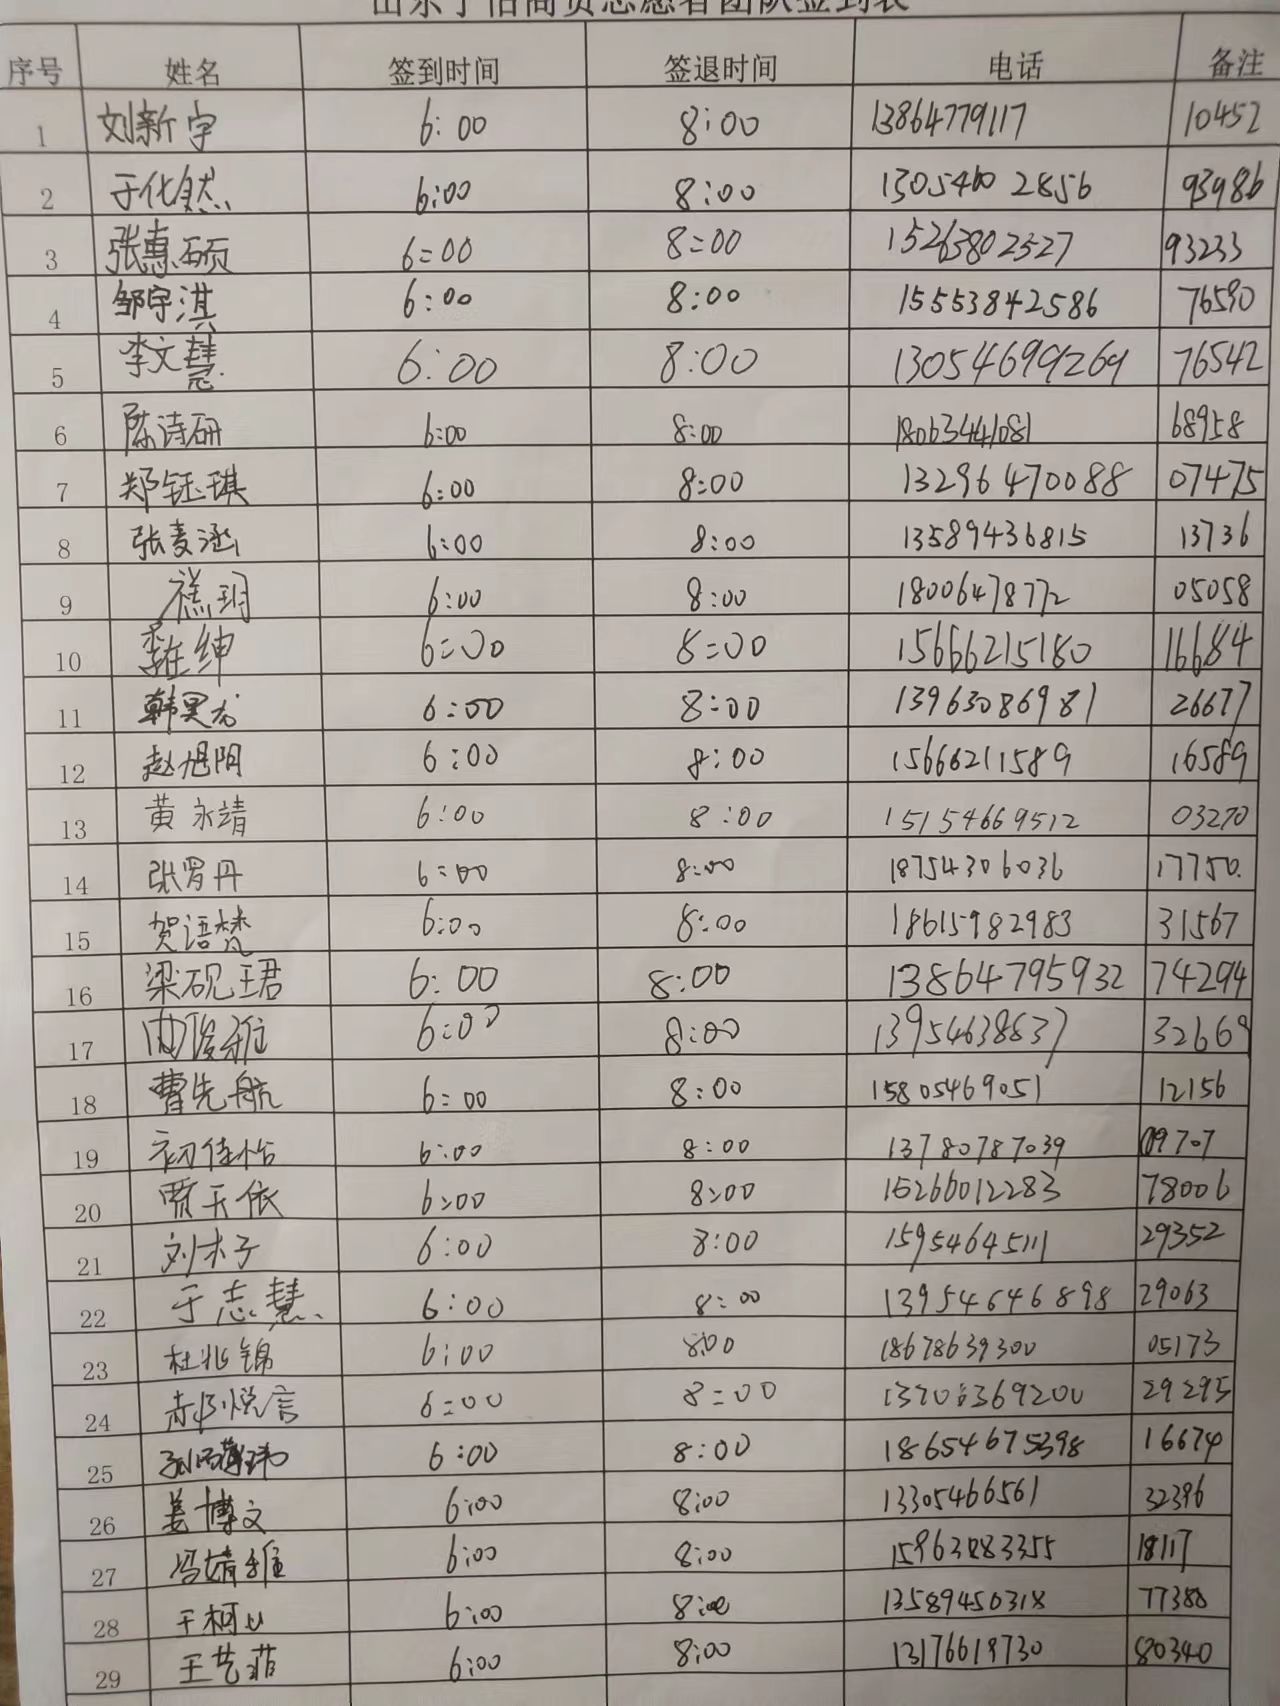 山东于怡商贸志愿者团队签到表
序号 姓名 签到时间 签退时间 电话 备注
1 刘新宇 6:00 8:00 13864779117 10452
2 于化然 6:00 8:00 13054602856 93986
3 张惠硕 6:00 8:00 15263802527 93233
4 邹宇淇 6:00 8:00 15553842586 76590
5 李文慧 6:00 8:00 13054699269 76542
6 陈诗研 6:00 8:00 18063441081 68958
7 郑钰琪 6:00 8:00 13296470088 07475
8 张麦涵 6:00 8:00 13589436815 13736
9 6:00 8:00 18006478772 05058
10 6:00 8:00 15666215180 16684
11 6:00 8:00 13963086981 26677
12 赵旭阳 6:00 8:00 15666211589 16589
13 黄永靖 6:00 8:00 15154669512 03270
14 张罗丹 6:00 8:00 18754306036 17750
15 贺语梵 6:00 8:00 18615982983 31567
16 梁砚珺 6:00 8:00 13864795932 74294
17 6:00 8:00 13954638637 32669
18 曹先航 6:00 8:00 15805469051 12156
19 初佳怡 6:00 8:00 13780787039 09707
20 贾天依 6:00 8:00 15266012283 78006
21 刘木子 6:00 8:00 15954645111 29352
22 于志慧 6:00 8:00 13954646898 29063
23 杜兆锦 6:00 8:00 18678639300 05173
24 郝悦言 6:00 8:00 29295
25 6:00 8:00 18654675398 16674
26 姜博文 6:00 8:00 13305466561 32396
27 冯婧雅 6:00 8:00 18117
28 于柯 6:00 8:00 13589450318 77388
29 王艺菲 6:00 8:00 13176619730 80340